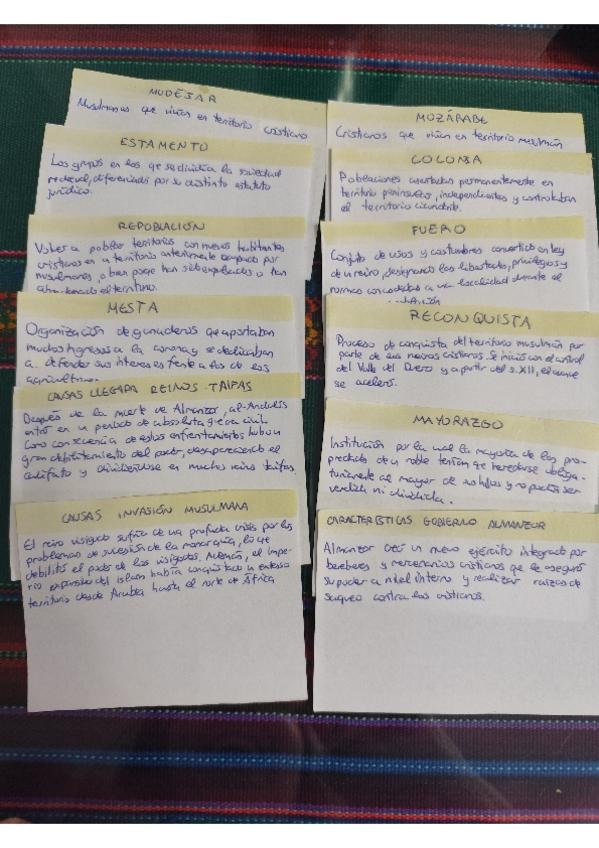 MUDÉJAR
Musulmanes que vivían en territorio cristiano
ESTAMENTO
Los grupos en los que se dividía la sociedad
medieval, diferenciados por su distinto estatuto
jurídico.
REPOBLACIÓN
Volver a poblar territorios con nuevos habitantes
cristianos en un territorio anteriormente ocupado por
musulmanes, o bien porque han sido expulsados o han
abandonado el territorio.
MESTA
Organización de ganaderos que aportaban
muchos ingresos a la corona y se dedicaban
a defender sus intereses frente a los de los
agricultores
CAUSAS LLEGADA REINOS TAIFAS
Después de la muerte de Almanzor, al-Andalus
entró en un periodo de absoluta guerra civil.
Como consecuencia de estos enfrentamientos hubo un
gran debilitamiento del poder, desapareciendo el
califato y dividiéndose en muchos reinos taifas.
CAUSAS INVASIÓN MUSULMANA
El reino visigodo sufría de una profunda crisis por los
problemas de sucesión de la monarquía, lo que
debilitó el poder de los visigodos. Además, el impe-
rio expansivo del islam había conquistado un extenso
territorio desde Arabia hasta el norte de África
MOZÁRABE
Cristianos que vivían en territorio musulmán
COLONIA
Poblaciones asentadas permanentemente en
territorio peninsular, independientes y controlaban
el territorio circundante.
FUERO
Conjunto de usos y costumbres convertido en ley
de un reino, designando las libertades, privilegios y
normas concedidas a una localidad durante el
RECONQUISTA
Proceso de conquista del territorio musulmán por
parte de los reinos cristianos. Se inició con el control
del Valle del Duero y a partir del s.XII, el avance
se aceleró.
MAYORAZGO
Institución por la cual la mayoría de las pro-
piedades de un noble tenían que heredarse obliga-
toriamente al mayor de los hijos y no podían ser
vendida ni dividida.
CARACTERÍSTICAS GOBIERNO ALMANZOR
Almanzor creó un nuevo ejército integrado por
bereberes y mercenarios cristianos que le aseguró
su poder a nivel interno y realizar razias de
saqueo contra los cristianos.